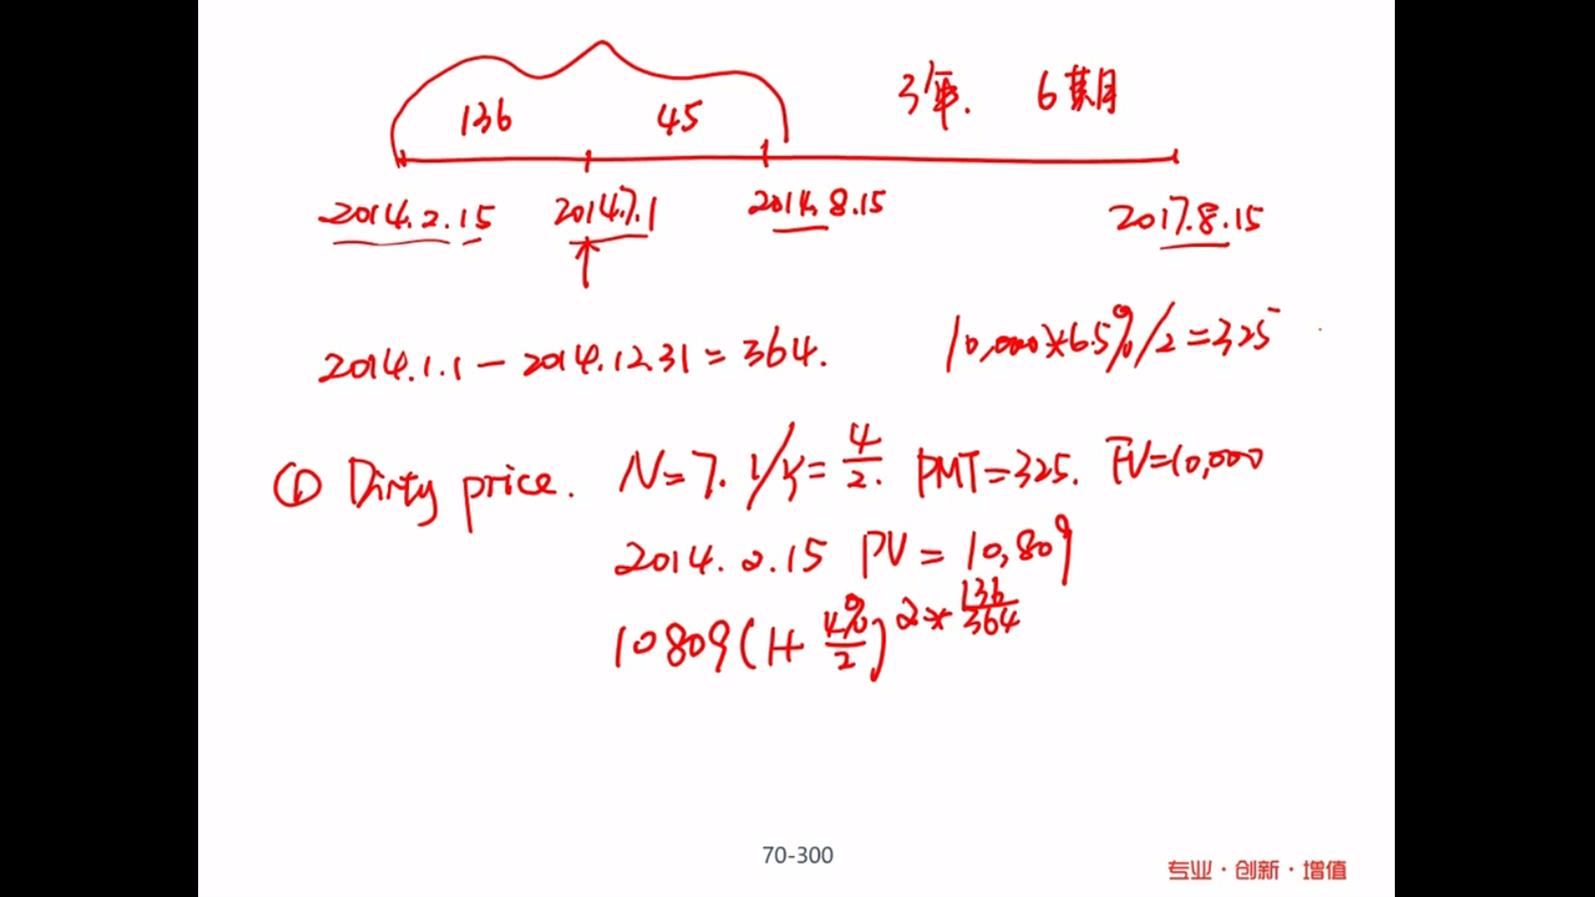 136 45 3年. 6期
2014.2.15 2014.7.1 2014.8.15 2017.8.15
2014.1.1 - 2014.12.31 = 364. 10,000*6.5%/2=325
① Dirty price. N=7. I/Y=4/2. PMT=325. FV=10,000
2014.2.15 PV = 10,809
10809(1+4%/2)^2*136/364
70-300
专业·创新·增值